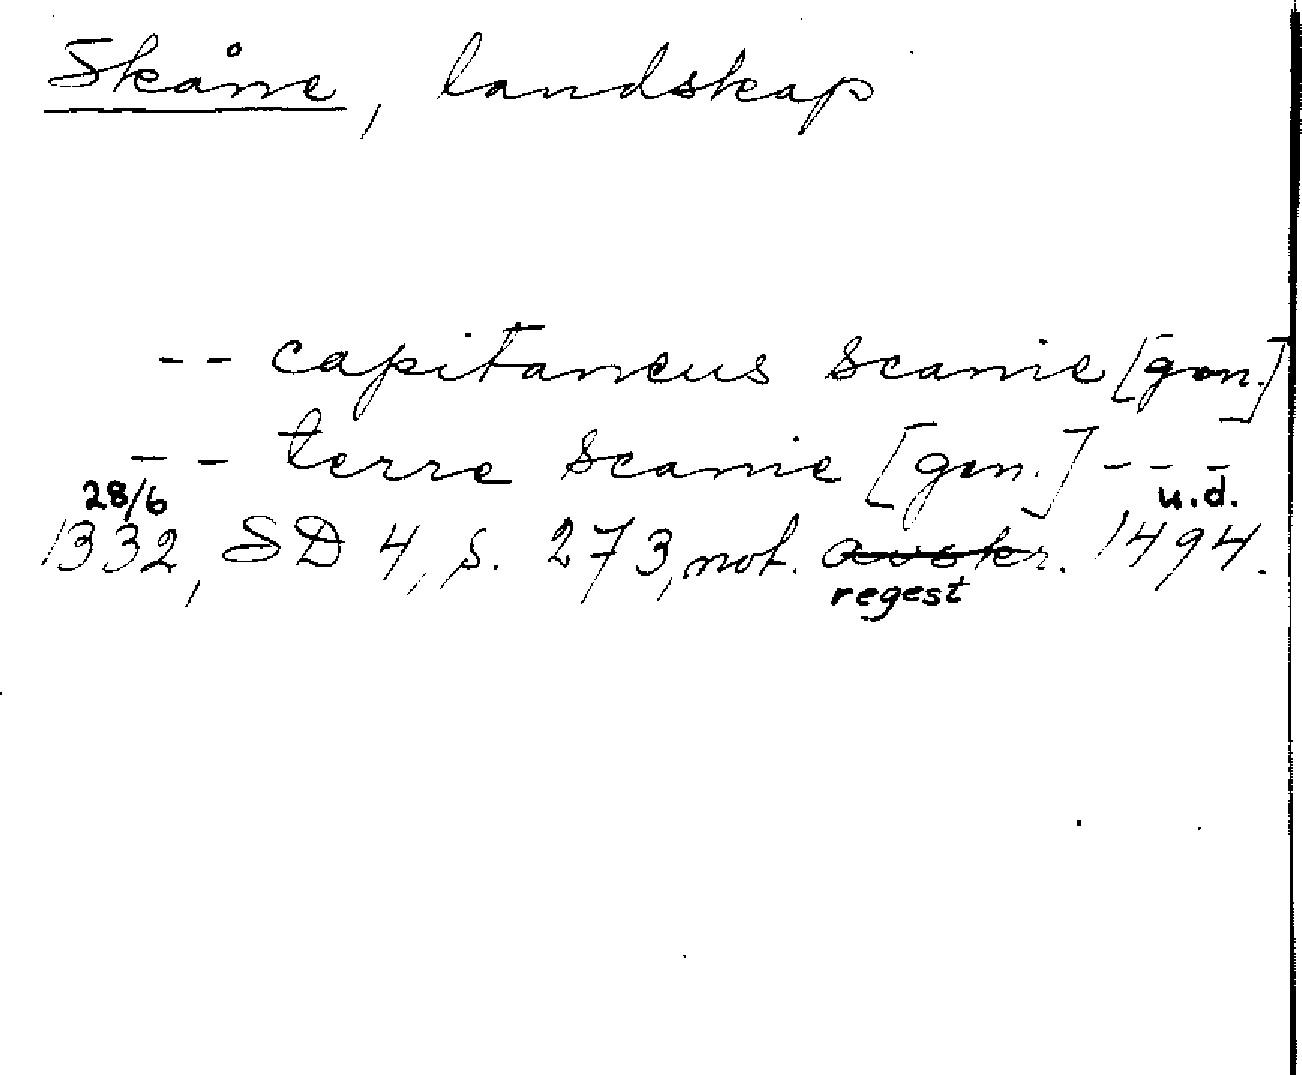 Skåne, landskap
-- capitaneus scanie [gen.]
-- terre scanie [gen.] ---
28/6 u.d.
1332, SD 4, s. 273, not. avskr. 1494.
regest